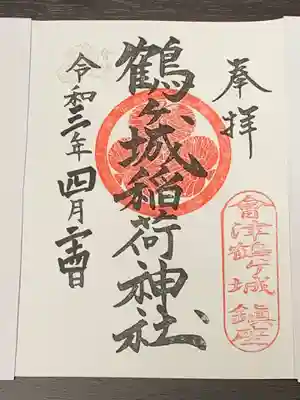 奉拝
會津鶴ヶ城 鎮座
鶴ヶ城稲荷神社
令和三年四月二十四日